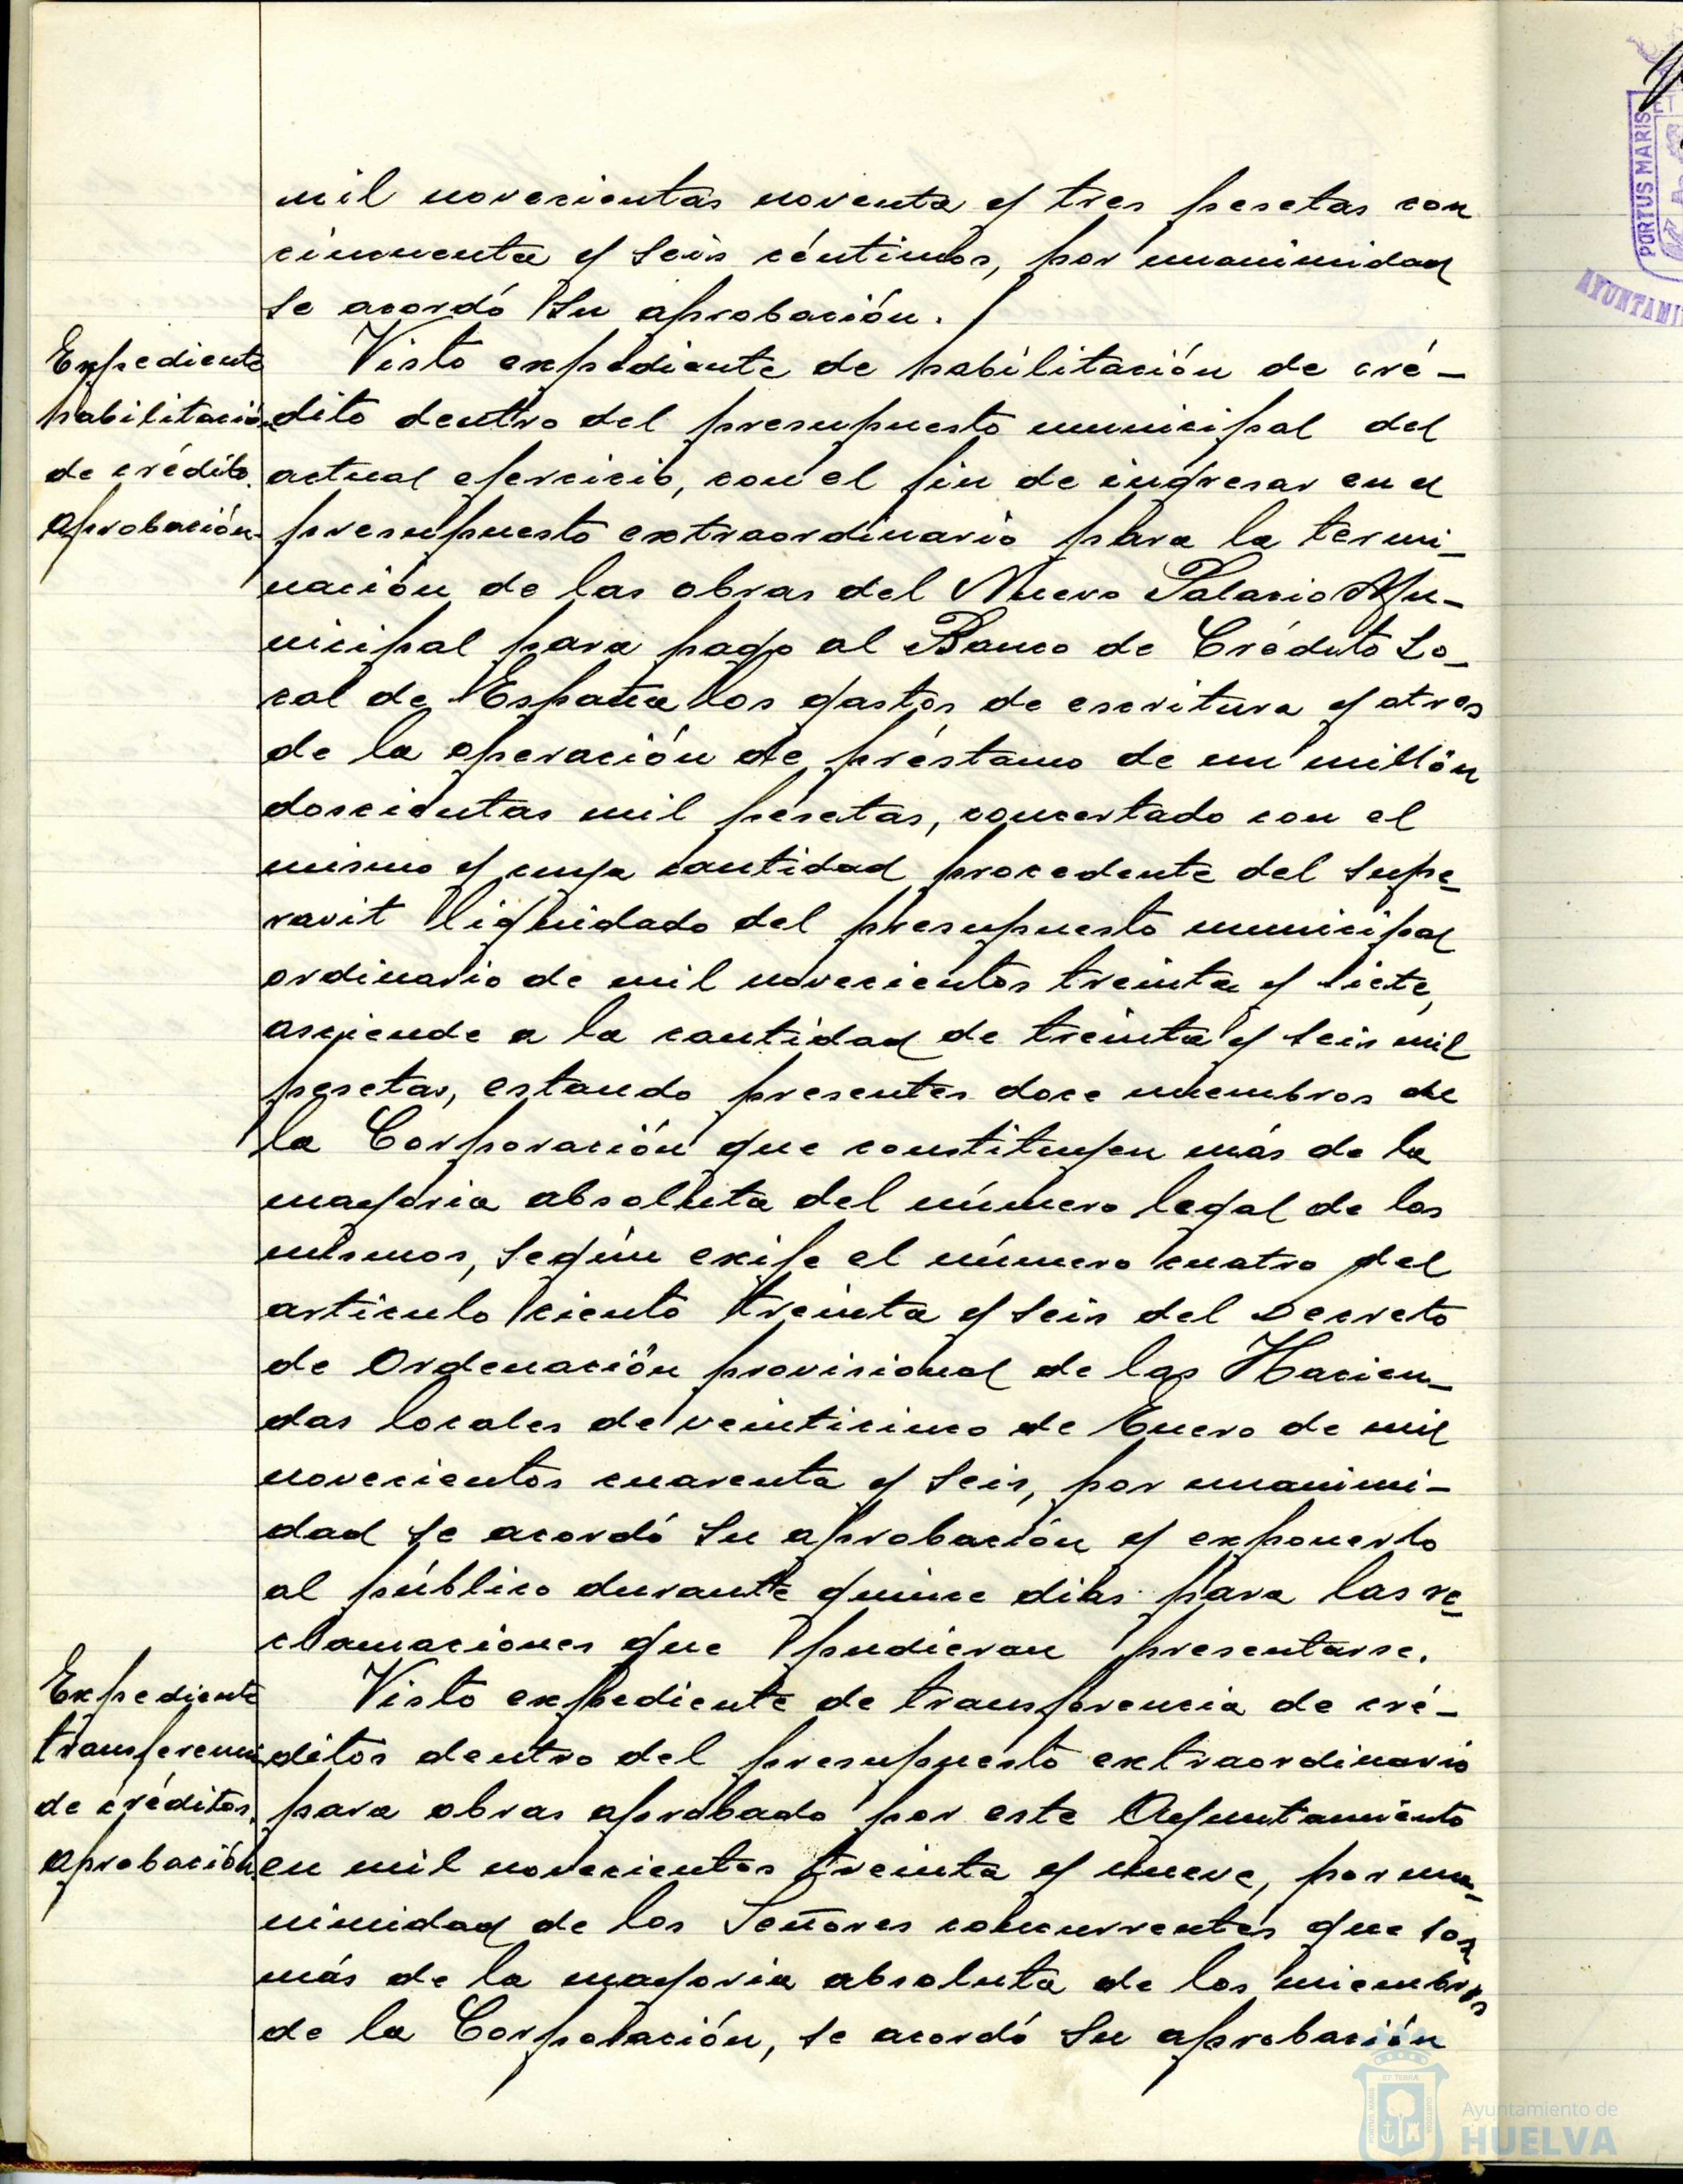 mil novecientas noventa y tres pesetas con
cincuenta y seis céntimos, por unanimidad
se acordó su aprobación.
Expediente
habilitación
de crédito.
Aprobación.
Visto expediente de habilitación de cré-
dito dentro del presupuesto municipal del
actual ejercicio, con el fin de ingresar en el
presupuesto extraordinario para la termi-
nación de las obras del Nuevo Palacio Mu-
nicipal para pago al Banco de Crédito Lo-
cal de España los gastos de escritura y otros
de la operación de préstamo de un millón
doscientas mil pesetas, concertado con el
mismo y cuya cantidad procedente del supe-
ravit liquidado del presupuesto municipal
ordinario de mil novecientos treinta y siete,
asciende a la cantidad de treinta y seis mil
pesetas, estando presentes doce miembros de
la Corporación que constituyen más de la
mayoria absoluta del número legal de los
mismos, según exije el número cuatro del
articulo ciento treinta y seis del Decreto
de Ordenación provisional de las Hacien-
das locales de veinticinco de Enero de mil
novecientos cuarenta y seis, por unanimi-
dad se acordó su aprobación y exponerlo
al público durante quince dias para las re-
clamaciones que pudieran presentarse.
Expediente
transferencia
de créditos.
Aprobación.
Visto expediente de transferencia de cré-
ditos dentro del presupuesto extraordinario
para obras aprobado por este Ayuntamiento
en mil novecientos treinta y nueve, por una-
nimidad de los Señores concurrentes que son
más de la mayoria absoluta de los miembros
de la Corporación, se acordó su aprobación
PORTUS MARIS ET
AYUNTAMI
Ayuntamiento de
HUELVA